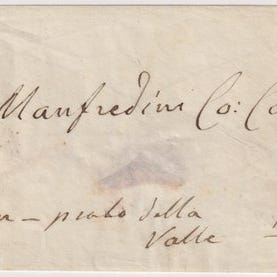 Manfredini Co: Co
prato della
Valle